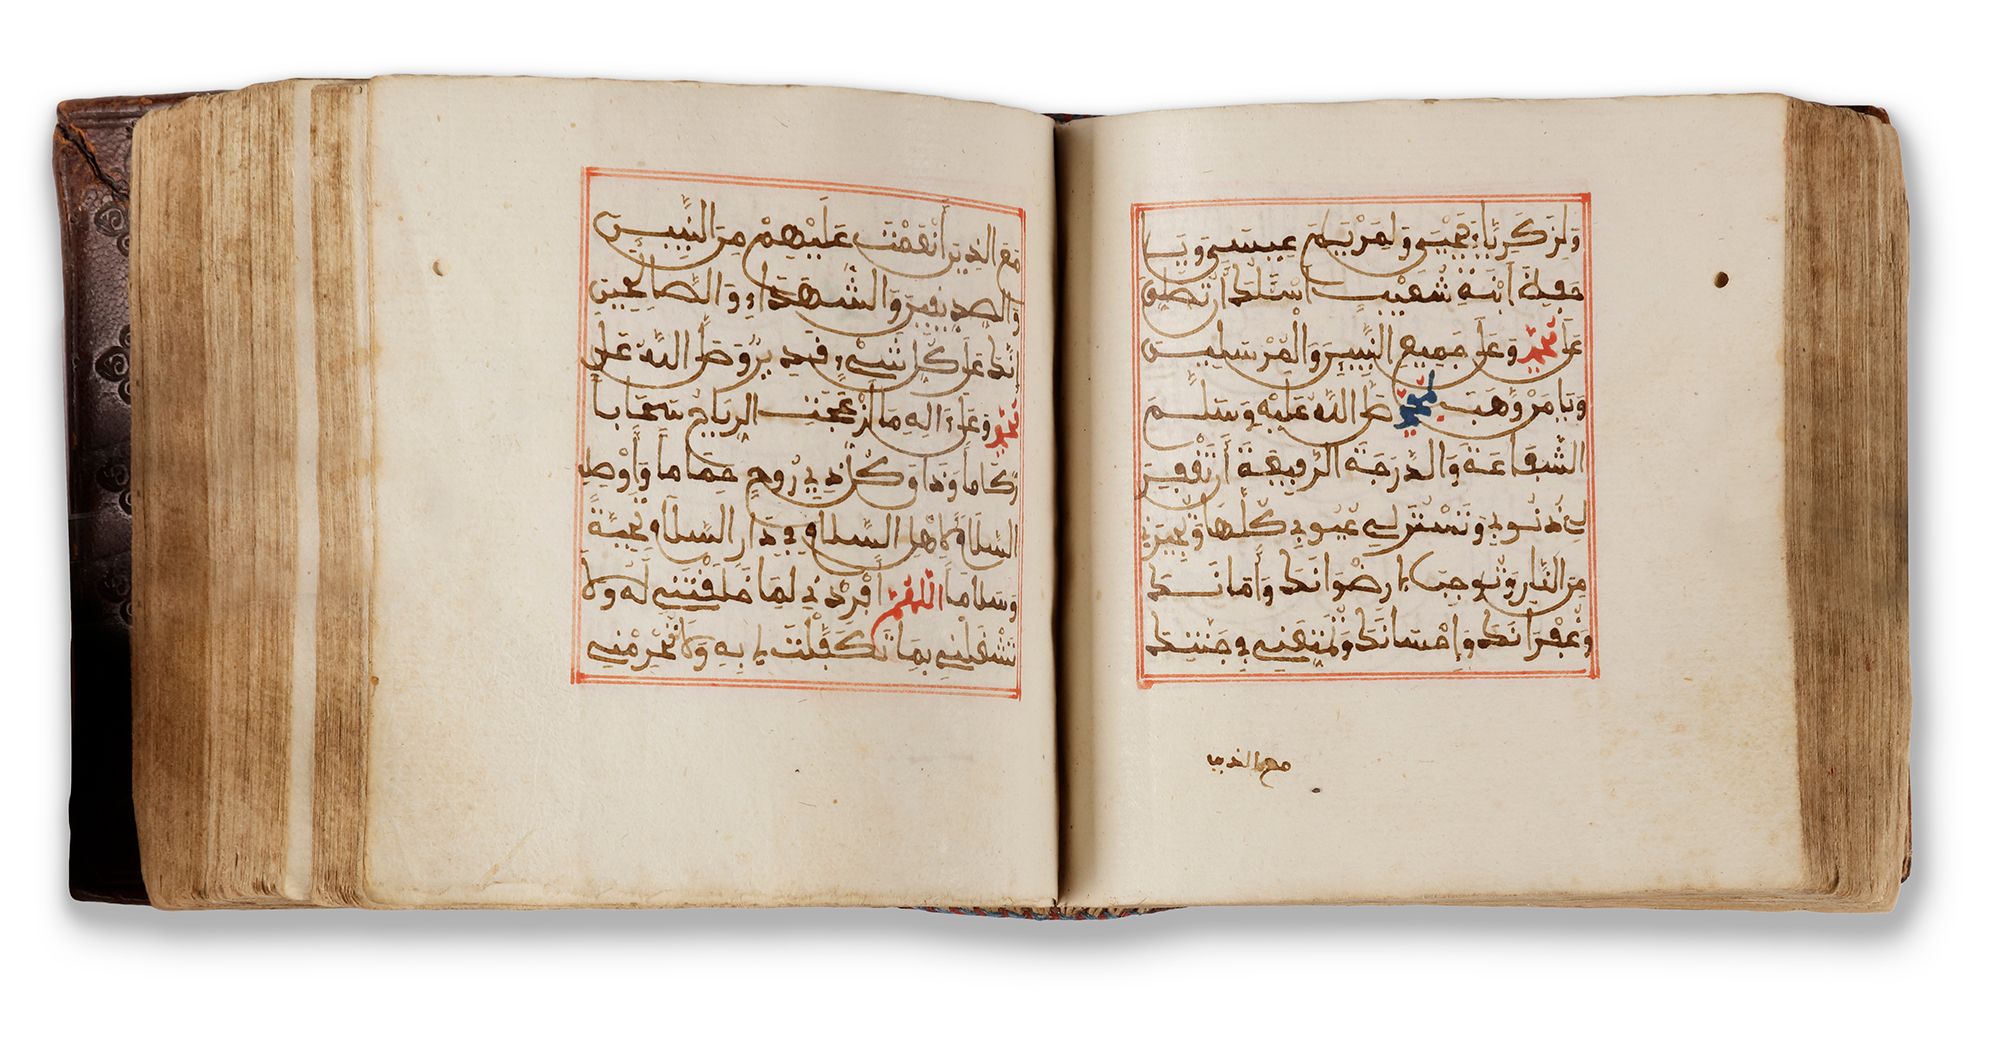 ولزكرياء يحيى ولمريم عيسى ويا
حفظ ابنة شعيب أسئلك أن تصلي
على محمد وعلى جميع النبيين والمرسلين
ويا من وهب لمحمد صلى الله عليه وسلم
الشفاعة والدرجة الرفيعة أن تغفر
لي ذنوبي وتستر لي عيوبي كلها وتجيرني
من النار وتوجب لي رضوانك وأمانك
وغفرانك وإحسانك وتمتعني في جنتك
مع الذين
مع الذين أنعمت عليهم من النبيين
والصديقين والشهداء والصالحين
إنك على كل شيء قدير وصلى الله على
محمد وعلى ءاله ما أزعجت الرياح سحابا
ركاما وذاق كل ذي روح حماما وأوصل
السلام لأهل السلام في دار السلام تحية
وسلاما اللهم أفردني لما خلقتني له ولا
تشغلني بما تكفلت لي به ولا تحرمني